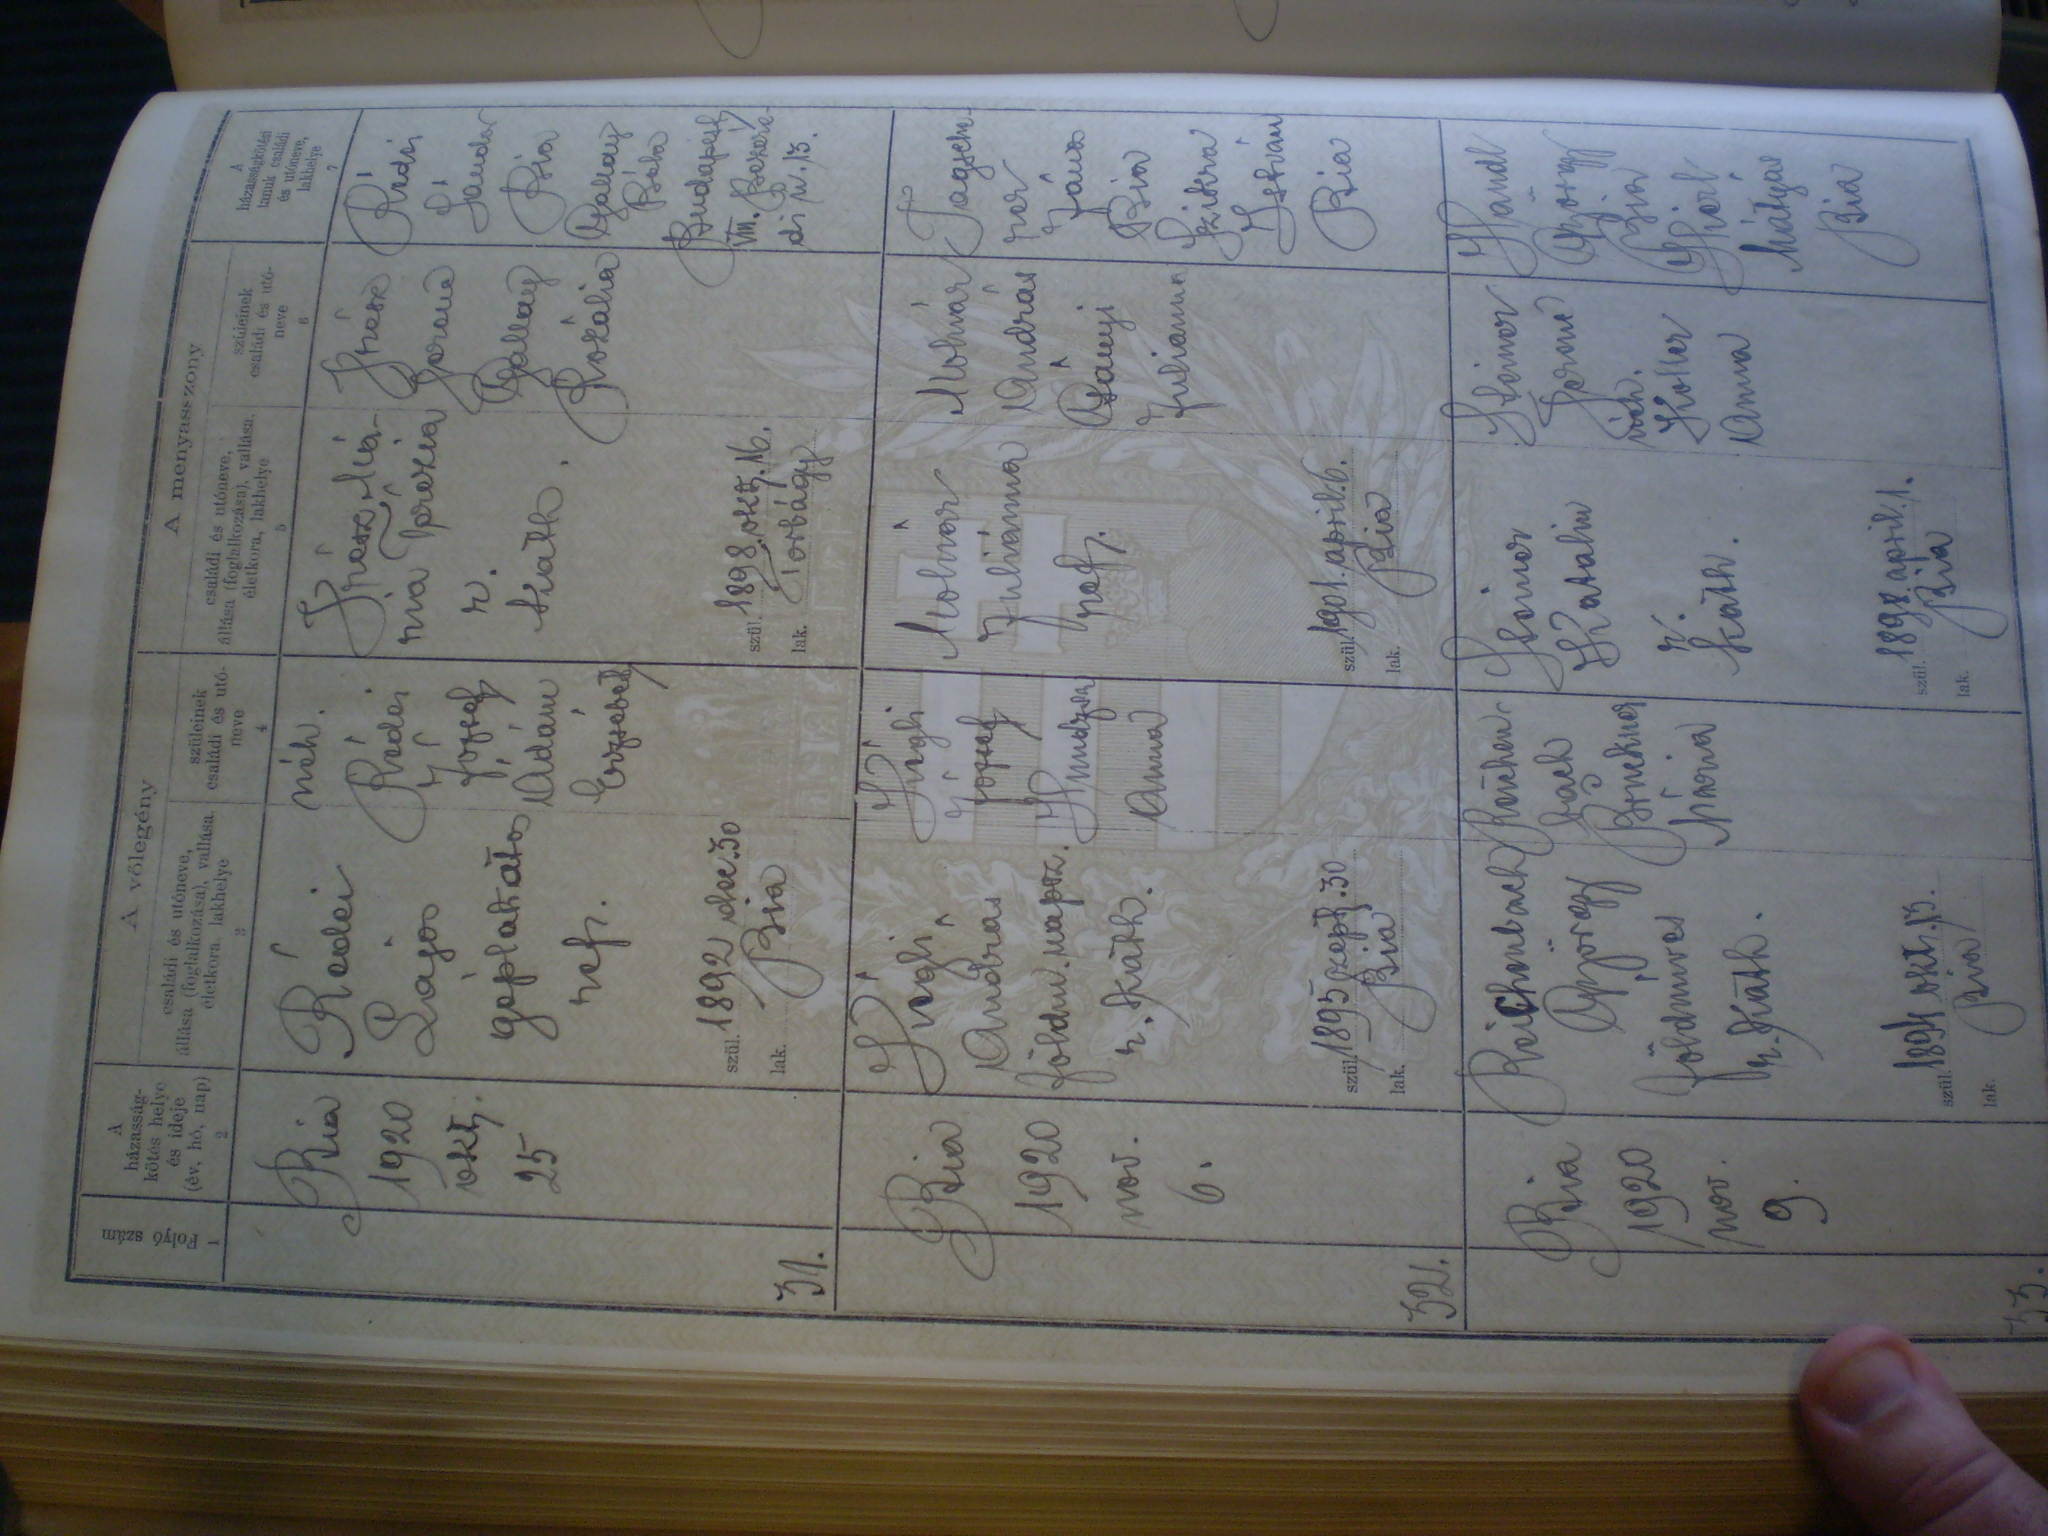 Folyó szám
1
A házasság-
kötés helye
és ideje
(év, hó, nap)
2
A vőlegény
családi és utóneve,
állása (foglalkozása), vallása,
életkora, lakhelye
3
szüleinek
családi és utó-
neve
4
A menyasszony
családi és utóneve,
állása (foglalkozása), vallása,
életkora, lakhelye
5
szüleinek
családi és utó-
neve
6
A
házasságkötési
tanuk családi
és utóneve,
lakhelye
7
31.
Bia
1920
okt.
25
Rédei
Lajos
géplakatos
ref.
szül. 1892 dec. 30
lak. Bia
néh.
Rédei
József
Ádám
Erzsébet
Má-
ria
r.
kath.
szül. 1898. okt. 16.
lak. Torbágy
Ferenc
Gallay
Rozália
Rédei
Sándor
Bia
Gallay
Béla
Budapest
VIII.
di u. 13.
32.
Bia
1920
nov.
6.
András
földm. napsz.
r. kath.
szül. 1895 szept. 30
lak. Bia
József
Anna
Molnár
Juliánna
ref.
szül. 1901. april. 6.
lak. Bia
Molnár
András
Gányi
Julianna
János
Bia
Szikra
István
Bia
33.
Bia
1920
nov.
9.
Reichenbach
György
földmíves
r. kath.
szül. 1894 okt. 13.
lak. Bia
Reichen-
bach
Mária
Katalin
r.
kath.
szül. 1898. april. 1.
lak. Bia
Ferenc
néh.
Koller
Anna
Händl
György
Bia
Mátyás
Bia